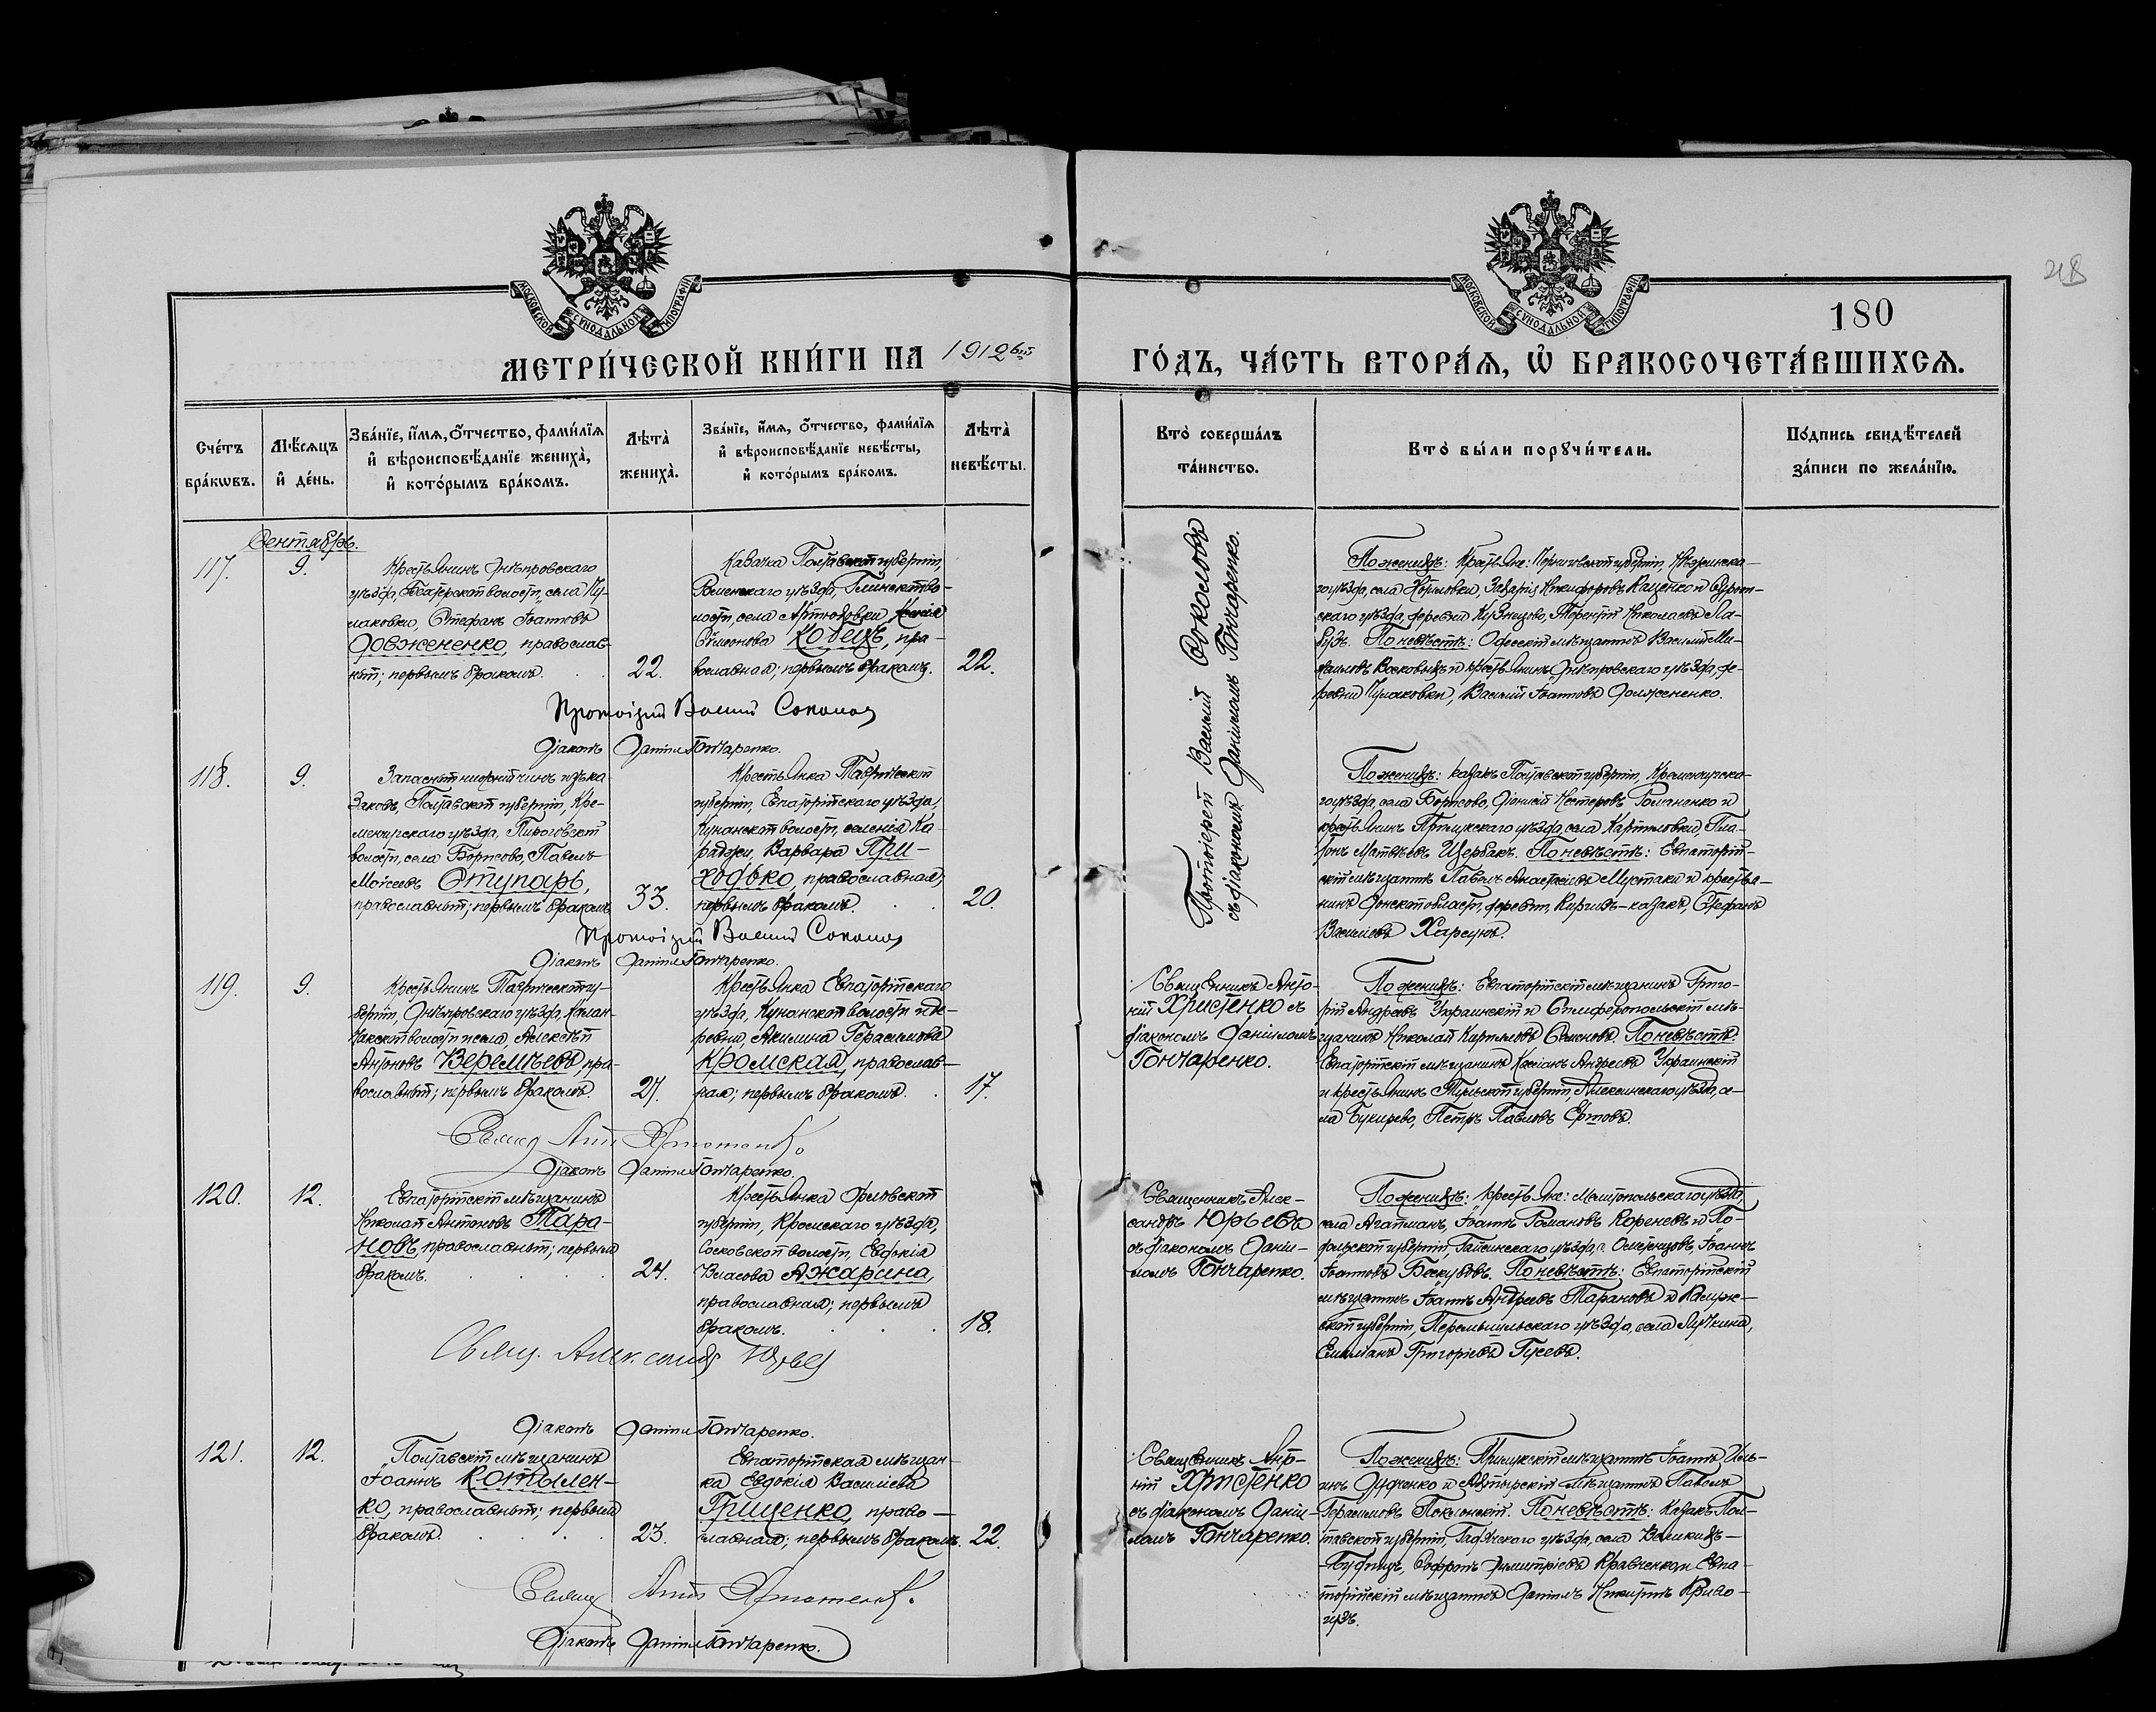 МОСКОВСКОЙ СѴНОДАЛЬНОЙ ТИПОГРАФІИ
МЕТРИ́ЧЕСКОЙ КНИ́ГИ НА 1912 ый
Сче́тъ бра́кѡвъ.
Мѣ́сѧцъ и҆ де́нь.
Зва́нїе, и҆́мѧ, ѻ҆́тчество, фами́лїѧ
и҆ вѣроисповѣ́данїе жениха̀,
и҆ кото́рымъ бра́комъ.
Лѣта̀
жениха̀.
Зва́нїе, и҆́мѧ, ѻ҆́тчество, фами́лїѧ
и҆ вѣроисповѣ́данїе невѣ́сты,
и҆ кото́рымъ бра́комъ.
Лѣта̀
невѣ́сты.
Сентябрь.
117.
9.
Крестьянинъ Днѣпровскаго
уѣзда,
Стефанъ Іоанновъ
Довжененко, православ-
ный; первымъ бракомъ.
22.
Казачка Полтавской губерніи,
Роменскаго уѣзда, Глинской во-
лости, села Артюховки
Симеонова Кобецъ, пра-
вославная; первымъ бракомъ.
22.
Протоіерей Василій Соколов
Діаконъ Даніилъ Гончаренко.
118.
9.
Запасный нижній чинъ изъ ка-
заковъ, Полтавской губерніи, Кре-
менчугскаго уѣзда, Пироговской
волости, села Борисово, Павелъ
Моисеевъ Ступарь,
православный; первымъ бракомъ
33.
Крестьянка Таврической
губерніи, Евпаторійскаго уѣзда,
Кунанской волости, селенія Ка-
раджи, Варвара При-
ходько, православная;
первымъ бракомъ.
20.
Протоіерей Василій Соколов
Діаконъ Даніилъ Гончаренко.
119.
9.
Крестьянинъ Таврической гу-
берніи, Днѣпровскаго уѣзда, Калан-
чакской волости и села Алексѣй
Антоновъ Веремѣевъ, пра-
вославный; первымъ бракомъ.
27.
Крестьянка Евпаторійскаго
уѣзда, Кунанской волости и де-
ревни, Акилина Герасимова
Кромская, православ-
ная; первымъ бракомъ.
17.
Свящ Ант Христенко
Діаконъ Даніилъ Гончаренко.
120.
12.
Евпаторійскій мѣщанинъ
Николай Антоновъ Тара-
новъ, православный; первымъ
бракомъ.
24.
Крестьянка Орловской
губерніи, Кромскаго уѣзда,
Сосковской волости, Евфкія
Власова Ажарина,
православная; первымъ
бракомъ.
18.
Свящ. Александр Юрьев
Діаконъ Даніилъ Гончаренко.
121.
12.
Полтавскій мѣщанинъ
Іоаннъ Котылен-
ко, православный; первымъ
бракомъ.
23.
Евпаторійская мѣщан-
ка Евдокія Васильева
Грищенко, право-
славная; первымъ бракомъ.
22.
Свящ Ант Христенко.
Діаконъ Даніилъ Гончаренко.
МОСКОВСКОЙ СѴНОДАЛЬНОЙ ТИПОГРАФІИ
180
ГО́ДЪ, ЧА́СТЬ ВТОРА́Ѧ, Ѽ БРАКОСОЧЕТА́ВШИХСѦ.
Кто̀ соверша́лъ
та́инство.
Кто̀ бы́ли порꙋчи́тели.
По́дпись свидѣ́телей
за́писи по жела́нїю.
Протоіерей Василій Соколовъ
съ діакономъ Даніиломъ Гончаренко.
По женихѣ: Крестьяне: Черниговской губерніи, Нѣжинска-
го уѣзда, села Захарія Никифоровъ Каценко и
скаго уѣзда, деревни Кузнецово, Терентій Николаевъ Ла-
По невѣстѣ: Одесскій мѣщанинъ Василій Ми-
хаиловъ и крестьянинъ Днѣпровскаго уѣзда, де-
ревни Чулаковки, Василій Іоанновъ Долженко.
По женихѣ: казакъ Полтавской губерніи, Кременчугска-
го уѣзда, села Борисово, Діонисій Нестеровъ Романенко и
крестьянинъ Прилукскаго уѣзда, села Картиловки, Пла-
тонъ Матвѣевъ Щербакъ. По невѣстѣ: Евпаторій-
скій мѣщанинъ Павелъ Анастасіевъ Мустаки и крестья-
нинъ Донской области, деревни, Киргизъ-казакъ, Стефанъ
Василіевъ Харсунъ.
Священникъ Анто-
ній Христенко съ
діакономъ Даніиломъ
Гончаренко.
По женихѣ: Евпаторійскій мѣщанинъ Григо-
рій Андреевъ Украинскій и Симферопольскій мѣ-
щанинъ Николай Кирилловъ Семеновъ. По невѣстѣ:
Евпаторійскій мѣщанинъ Касіанъ Андреевъ Украинскій
и крестьянинъ Тульской губерніи, Алексинскаго уѣзда, се-
ла Букирево, Петръ Павловъ Ершовъ.
Священникъ Алек-
сандръ Юрьевъ
съ діакономъ Дані-
иломъ Гончаренко.
По женихѣ: крестьяне: Мелитопольскаго уѣзда,
села Агайманъ, Іоаннъ Романовъ Кореневъ и По-
дольской губерніи, Гайсинскаго уѣзда, Іоаннъ
Іоанновъ Бескубовъ. По невѣстѣ: Евпаторійскій
мѣщанинъ Іоаннъ Андреевъ Тарановъ и Калуж-
ской губерніи, Перемышльскаго уѣзда, села Лучкина,
Емиліанъ Григоріевъ Гусевъ.
Священникъ Анто-
ній Христенко
съ діакономъ Даніи-
ломъ Гончаренко.
По женихѣ: Прилукскій мѣщанинъ Іоаннъ Иль-
инъ и Ахтырскій мѣщанинъ Павелъ
Герасимовъ Поклонскій. По невѣстѣ: Казакъ Пол-
тавской губерніи, Гадячскаго уѣзда, села Великихъ-
-Будищъ, Софронъ Димитріевъ Кравченко и Евпа-
торійскій мѣщанинъ Даніилъ Никитинъ Криво-